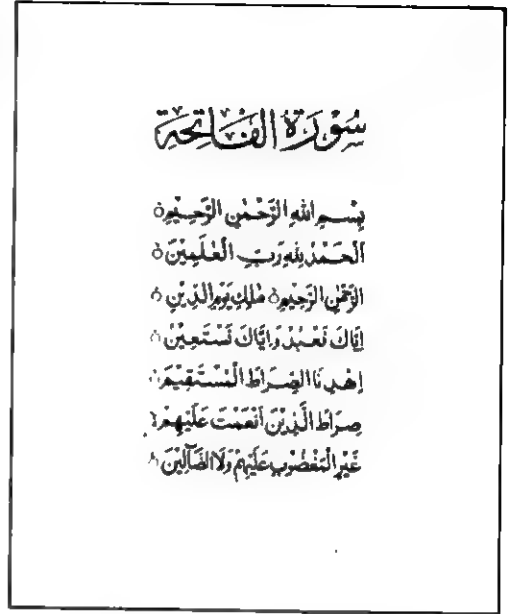 سُوْرَةُ الْفَاتِحَةِ
بِسْمِ اللهِ الرَّحْمٰنِ الرَّحِيْمِ ○
اَلْحَمْدُ لِلّٰهِ رَبِّ الْعٰلَمِيْنَ ○
الرَّحْمٰنِ الرَّحِيْمِ ○ مٰلِكِ يَوْمِ الدِّيْنِ ○
اِيَّاكَ نَعْبُدُ وَاِيَّاكَ نَسْتَعِيْنُ ○
اِهْدِنَا الصِّرَاطَ الْمُسْتَقِيْمَ ○
صِرَاطَ الَّذِيْنَ اَنْعَمْتَ عَلَيْهِمْ
غَيْرِ الْمَغْضُوْبِ عَلَيْهِمْ وَلَا الضَّآلِّيْنَ ○